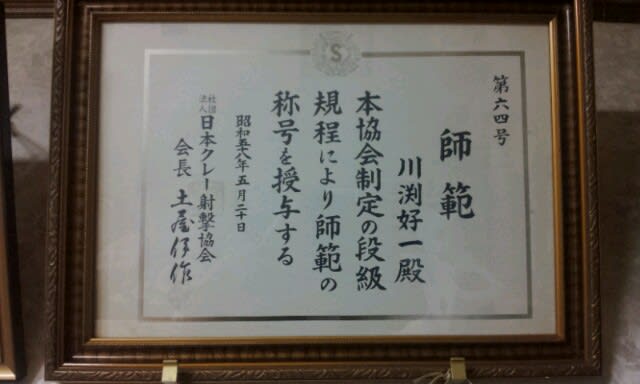 S
第六四号
師範
川渕好一殿
本協会制定の段級
規程により師範の
称号を授与する
昭和五十八年五月二十日
社団法人日本クレー射撃協会
会長 土屋伊作